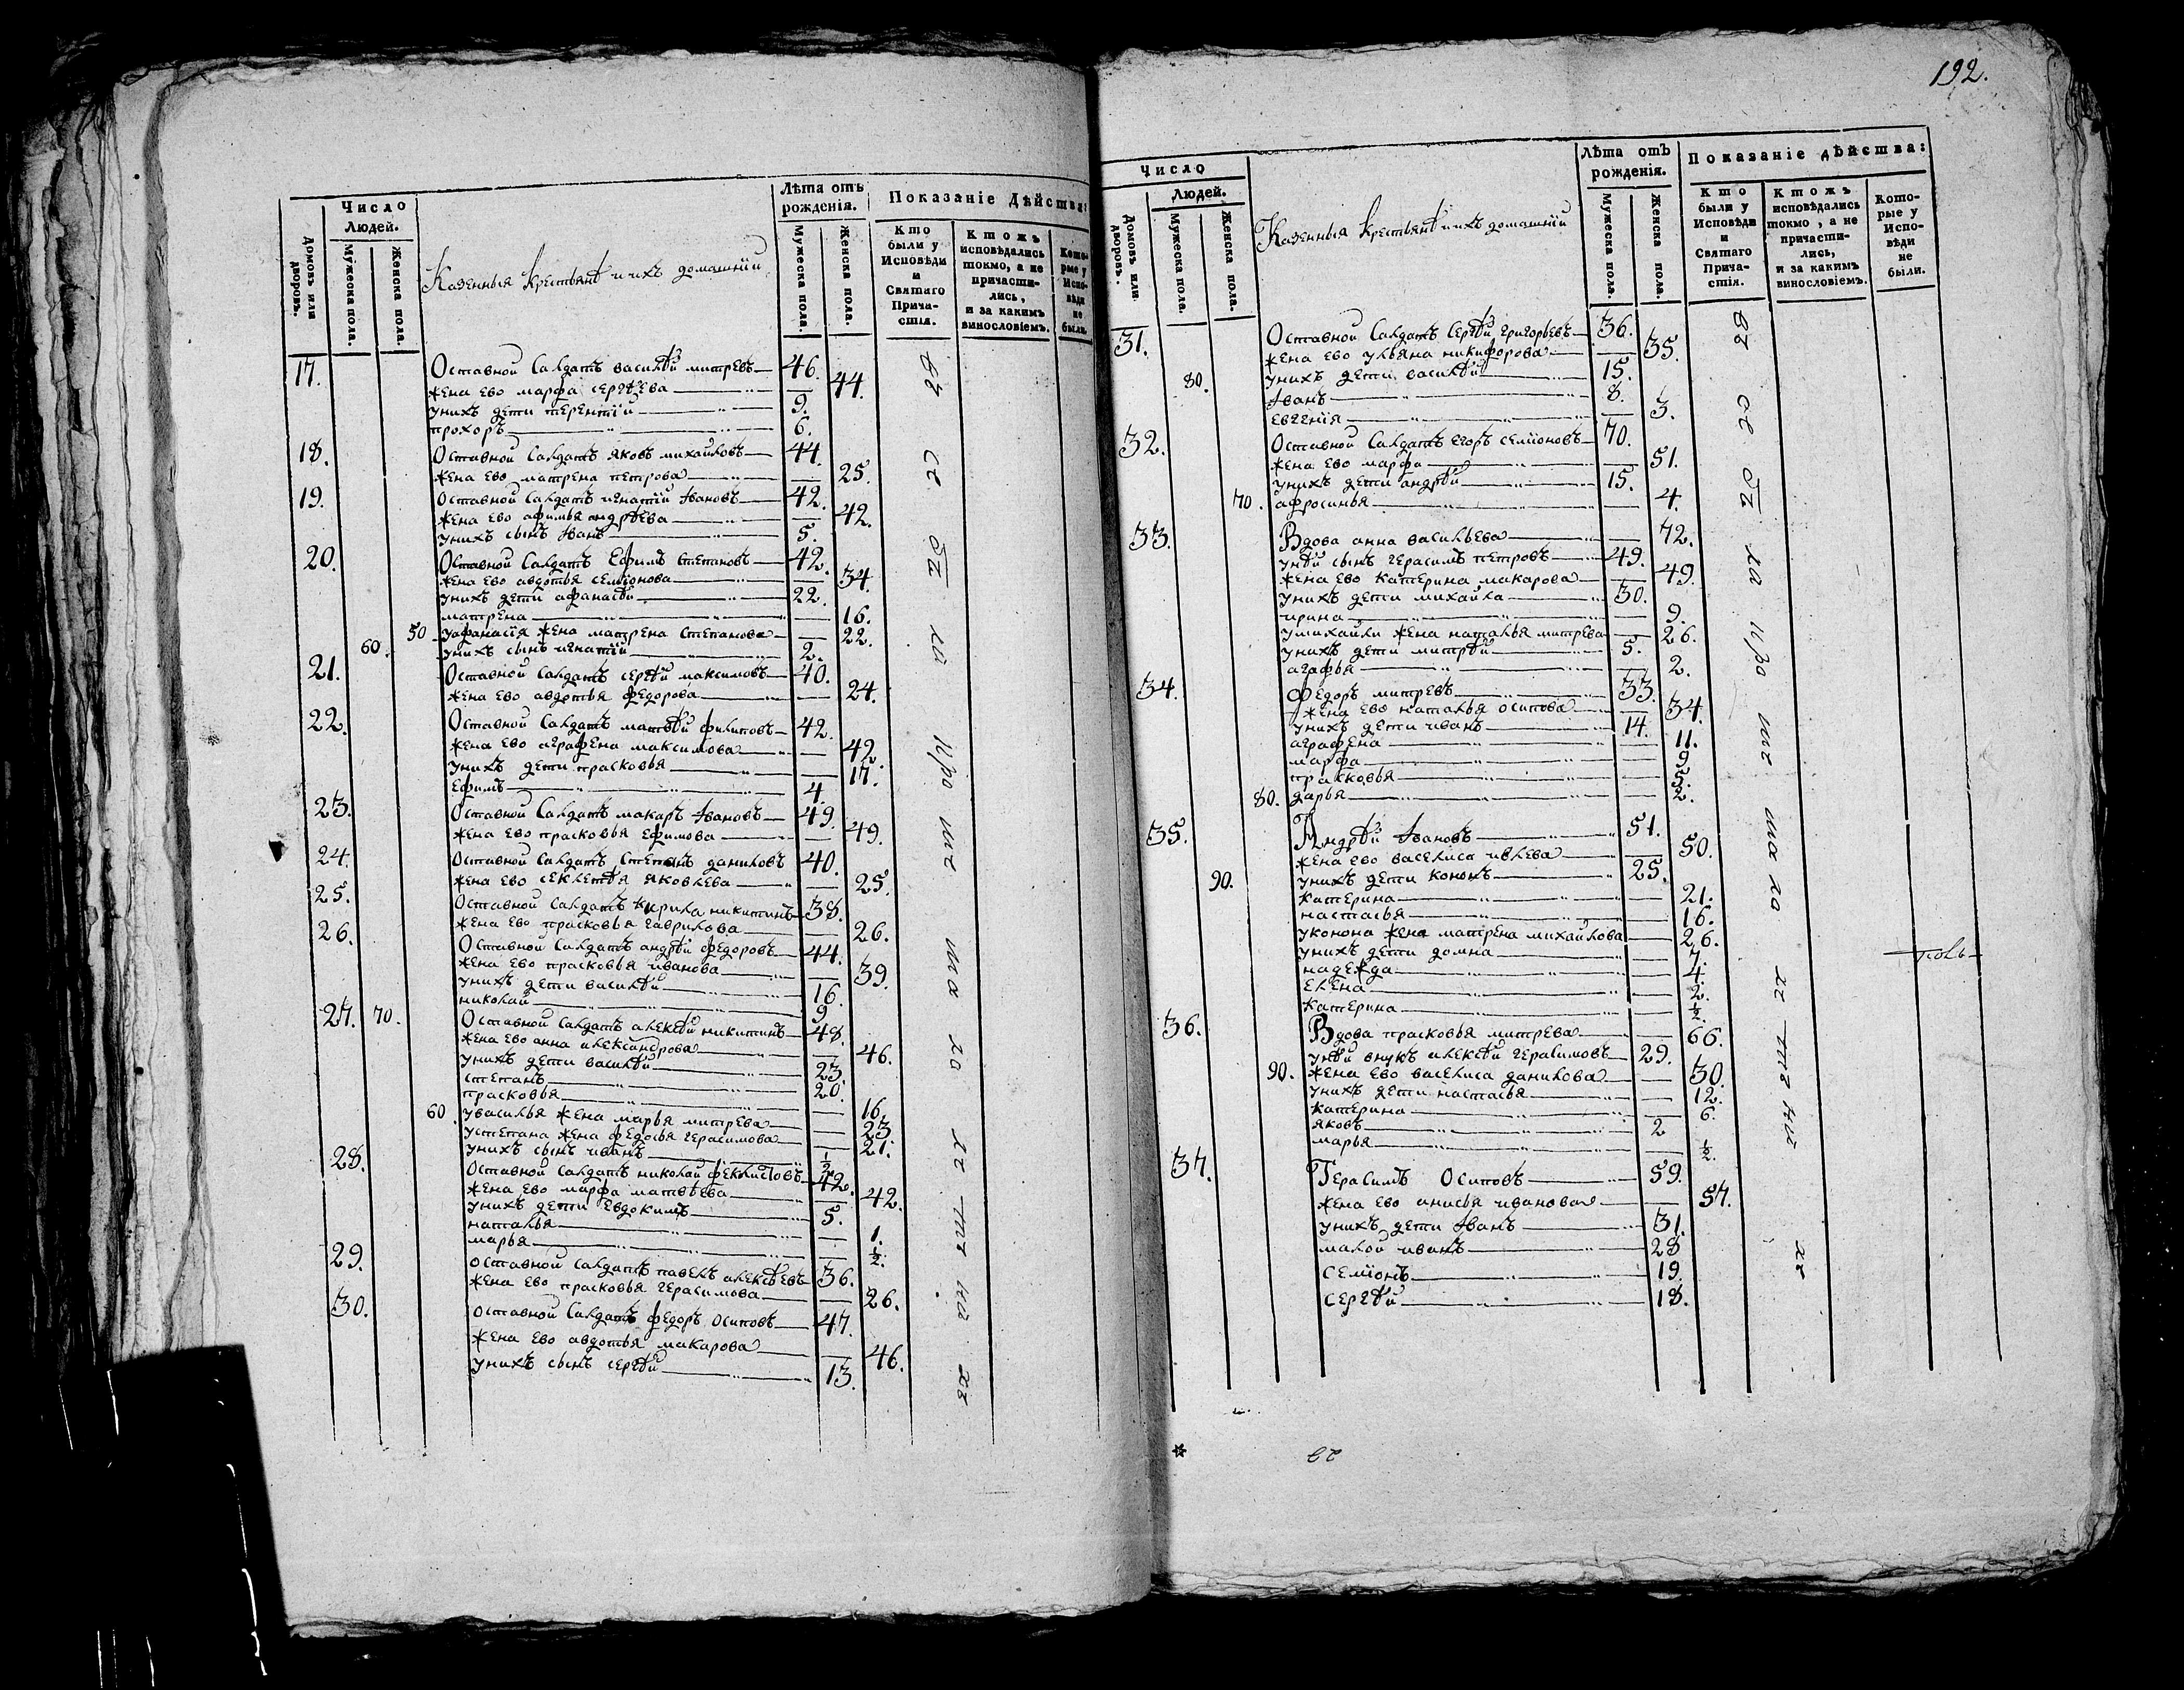 Число
Людей.
Домовъ или дворовъ.
Мужеска пола.
Женска пола.
Казенныя крестьянѣ и ихъ домашніи
Лѣта отъ рожденія.
Мужеска пола.
Женска пола.
Показаніе Дѣйства:
Кто были у Исповѣди и Святаго Прича-стія.
Ктожъ исповѣдались токмо, а не причасти-лись, и за какимъ винословіемъ.
Кото-рые у Испо-вѣди не были.
17. Оставной Салдатъ василѣй митревъ 46.
жена ево марфа сергѣева 44.
унихъ дети терентїй 9.
прохоръ 6.
18. Оставной Салдатъ яковъ михайловъ 44.
жена ево матрена петрова 25.
19. Оставной Салдатъ игнатїй Ивановъ 42.
жена ево афимья андрѣева 42.
унихъ сынъ Иванъ 5.
20. Оставной Салдатъ Ефимъ Степановъ 42.
жена ево авдотья семїонова 34.
унихъ дети афанасѣй 22.
матрена 16.
50 уафанасія жена матрена Степанова 22.
60. унихъ сынъ игнатїй 2.
21. Оставной Салдатъ сергѣй максимовъ 40.
жена ево авдотья федорова 24.
22. Оставной Салдатъ матвѣй филиповъ 42.
жена ево аграфена максимова 42.
унихъ дети прасковья 17.
Ефимъ 4.
23. Оставной Салдатъ макаръ Ивановъ 49.
жена ево прасковья Ефимова 49.
24. Оставной Салдатъ Степанъ даниловъ 40.
жена ево секлетѣя яковлева 25.
25. Оставной Салдатъ кирила никитинъ 38.
жена ево прасковья гаврилова 26.
26. Оставной Салдатъ андрѣй федоровъ 44.
жена ево прасковья иванова 39.
унихъ дети василѣй 16.
николай 9.
27. 70. Оставной Салдатъ алексѣй никитинъ 48.
жена ево анна александрова 46.
унихъ дети василѣй 23.
степанъ 20.
прасковья 16.
60 увасилья жена марья митрева 23.
устепана жена федосья герасимова 21.
унихъ сынъ иванъ ½
28. Оставной Салдатъ николай феклистовъ 42.
жена ево марфа матвѣева 42.
унихъ дети Евдокимъ 5.
наталья 1.
марья ½.
29. Оставной салдатъ павелъ алексѣевъ 36.
жена ево прасковья герасимова 26.
30. Оставной Салдатъ федоръ осиповъ 47.
жена ево авдотья макарова 46.
унихъ сынъ сергѣй 13.
192.
Число
Людей.
Домовъ или дворовъ.
Мужеска пола.
Женска пола.
Казенныя крестьянѣ и ихъ домашніи
Лѣта отъ рожденія.
Мужеска пола.
Женска пола.
Показаніе дѣйства:
Кто были у Исповѣди и Святаго Прича-стія.
Ктожъ исповѣдались токмо, а не причасти-лись, и за какимъ винословіемъ.
Кото-рые у Испо-вѣди не были.
31. Оставной Салдатъ Сергѣй григорьевъ 36.
жена ево ульяна никифорова 35.
80. унихъ дети василѣй 15.
Иванъ 8.
евгенія 3.
32. Оставной Салдатъ егоръ семїоновъ 70.
жена ево марфа 51.
унихъ дети андрѣй 15.
70. афросинья 4.
33. Вдова анна васильева 72.
унѣй сынъ герасимъ петровъ 49.
жена ево катерина макарова 49.
унихъ дети михайла 30.
ирина 9.
умихайли жена наталья митрева 26.
унихъ дети митрѣй 5.
агафья 2.
34. Федоръ митревъ 33.
жена ево наталья осипова 34.
унихъ дети иванъ 14.
аграфена 11.
марфа 9
прасковья 5.
80. дарья 2.
35. Андрѣй Ивановъ 51.
жена ево василиса ивлева 50.
90. унихъ дети кононъ 25.
катерина 21.
настасья 16.
уконона жена матрена михайлова 26.
унихъ дети домна 7.
надежда 4.
елена 2.
катерина ½.
36. Вдова прасковья митрева 66.
унѣй внукъ алексѣй герасимовъ 29.
90. жена ево василиса данилова 30.
унихъ дети настасья 12.
катерина 6.
яковъ 2
марья ½.
37. Герасимъ Осиповъ 59.
жена ево анисья иванова 57.
унихъ дети Иванъ 31.
малой иванъ 28
семїонъ 19.
сергѣй 18.